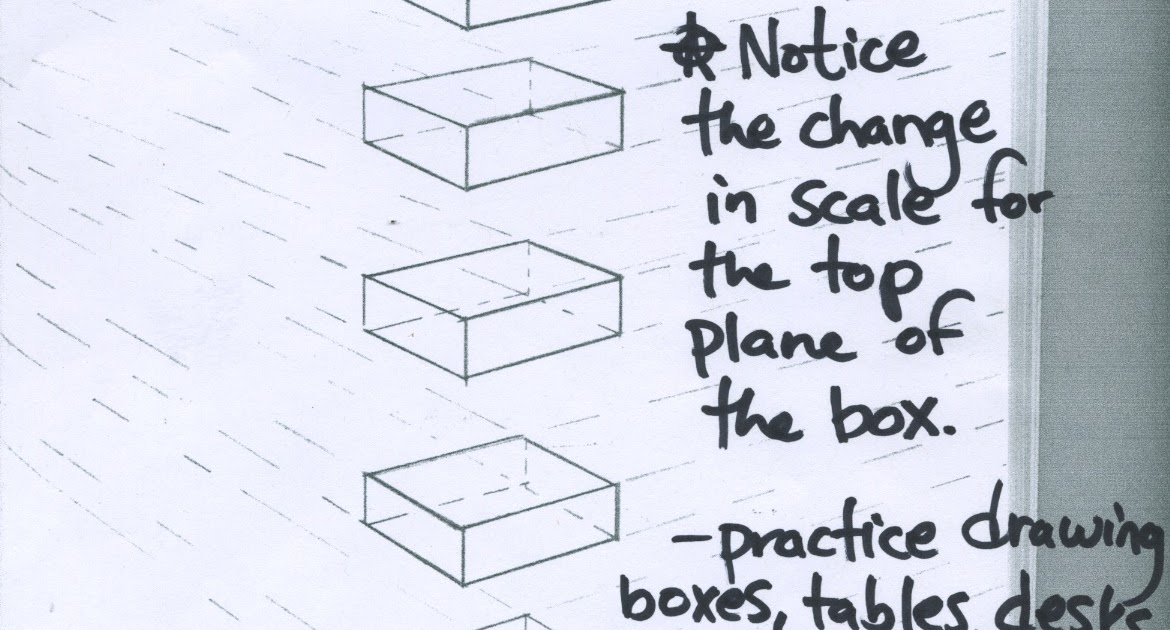 Notice
the change
in scale for
the top
plane of
the box.
- practice drawing
boxes, tables, desks